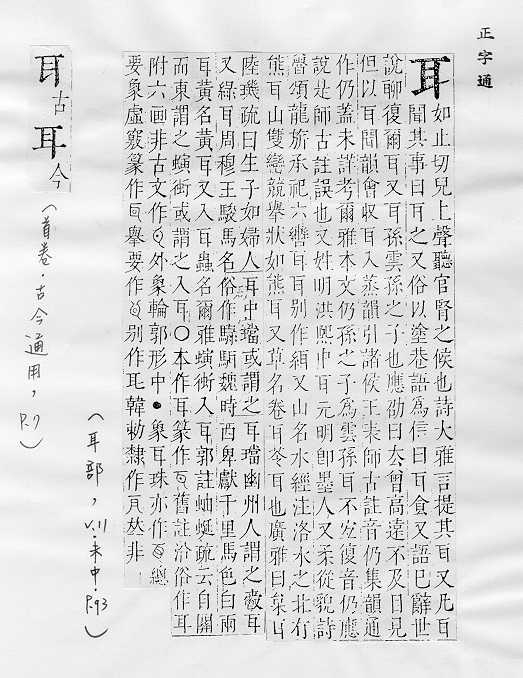 正字通
耳
如止切兒上聲聽官腎之候也詩大雅言提其耳又凡耳
聞其事曰耳之又俗以塗巷語為信曰耳食又語已辭世
說聊復爾耳又耳孫雲孫之子也應劭曰玄曾高遠不及目見
但以耳聞韻會収耳入蒸韻引諸侯王表師古註音仍集韻通
作仍蓋未詳考爾雅本文仍孫之子為雲孫耳不宐復音仍應
說是師古註誤也又姓明洪熙中耳元明卽墨人又柔從貌詩
魯頌龍旂承祀六轡耳耳別作緝又山名水經注洛水之北有
熊耳山雙巒競舉狀如熊耳又草名卷耳苓耳也廣雅曰枲耳
陸璣疏曰生子如婦人耳中璫或謂之耳璫幽州人謂之爵耳
又綠耳周穆王駿馬名俗作騄駬魏時西卑獻千里馬色白兩
耳黃名黃耳又入耳蟲名爾雅螾衝入耳郭註蚰蜒疏云自關
而東謂之螾衝或謂之入耳〇本作耳篆作 舊註汾俗作耳
附六画非古文作 外象輪郭形中●象耳珠亦作 總
要象虛竅篆作 舉要作 別作耳韓勑隸作 非
耳古
耳今
（首卷，古今通用，P.7）
（耳部，v.11，未中 P.93）